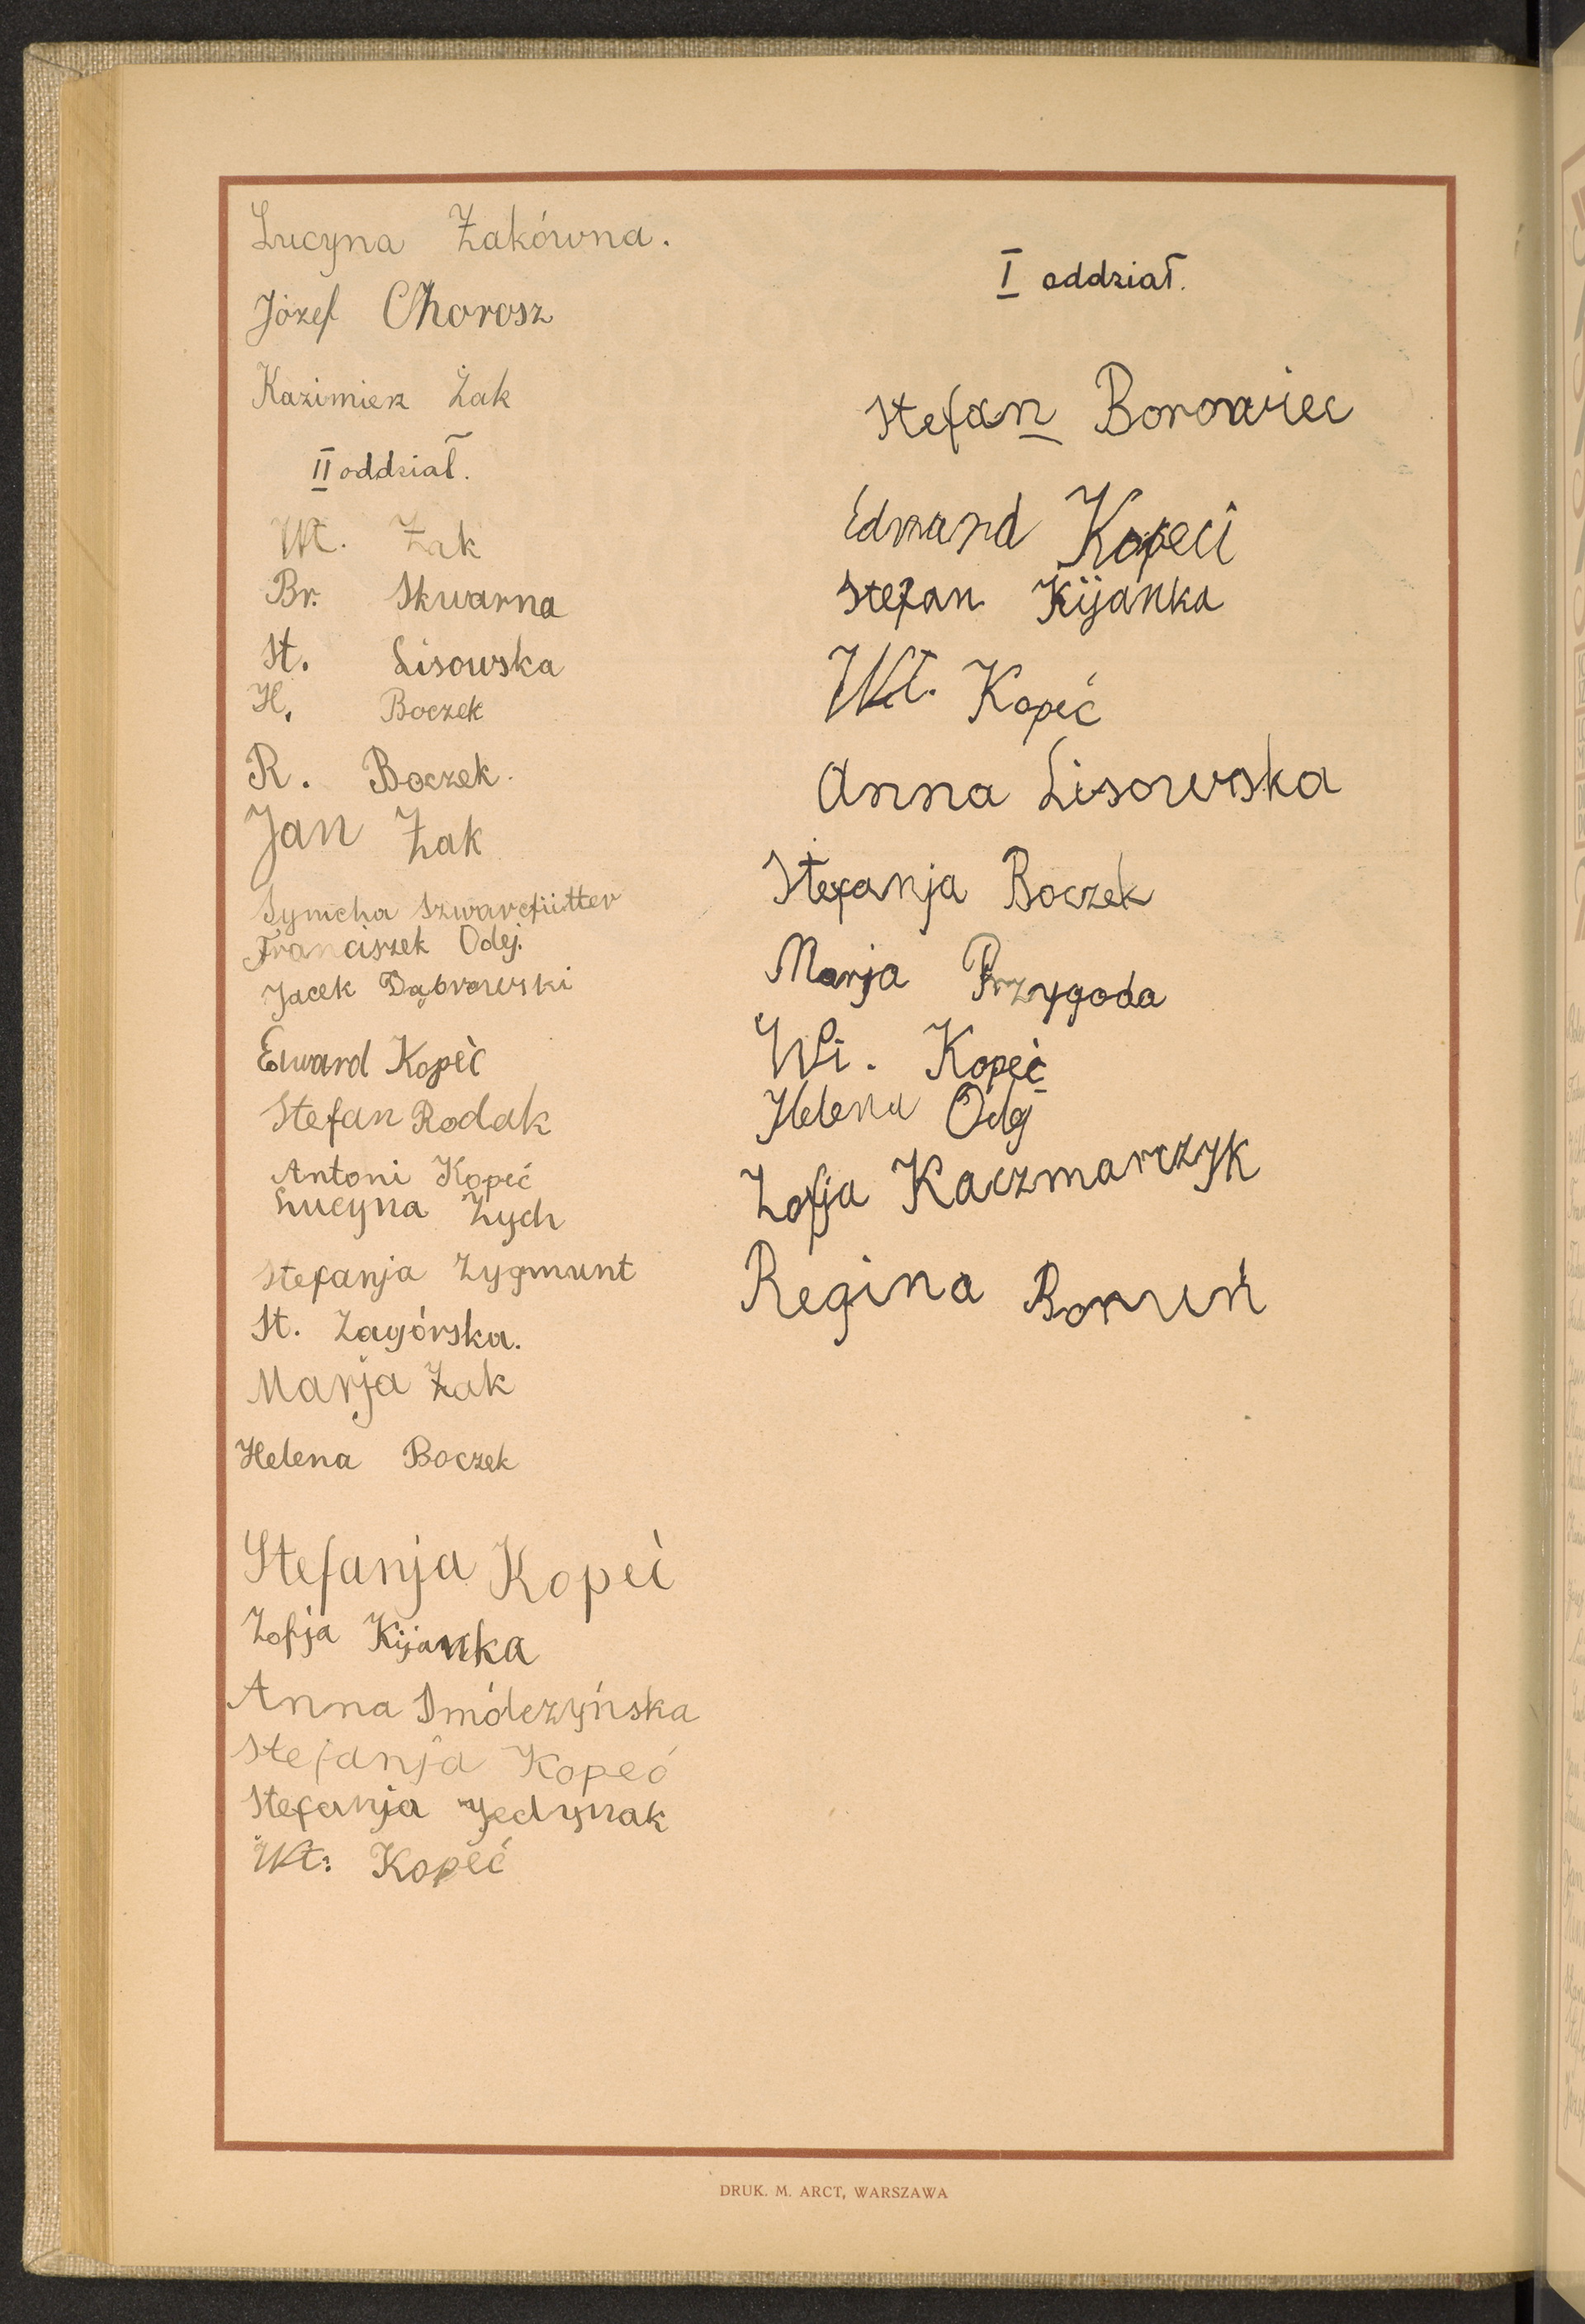 Lucyna Żakówna.
Józef Chorosz
Kazimierz Żak
II oddział.
Wł. Żak
Br. Skwarna
St. Lisowska
H. Boczek
R. Boczek.
Jan Żak
Symcha Szwarcfutter
Franciszek Odej.
Jacek Dąbrowski
Edward Kopèć
Stefan Rodak
Antoni Kopeć
Lucyna Zych
Stefanja Zygmunt
St. Zagórska.
Marja Żak
Helena Boczek
Stefanja Kopeć
Zofja Kijanka
Anna Smólczyńska
Stefanja Kopeć
Stefanja Jedynak
Wł. Kopeć
I oddział.
Stefan Borowiec
Edward Kopeć
Stefan Kijanka
Wł. Kopeć
Anna Lisowska
Stefanja Boczek
Marja Przygoda
Wł. Kopeć
Helena Odej
Zofja Kaczmarczyk
Regina Boruń
DRUK. M. ARCT, WARSZAWA